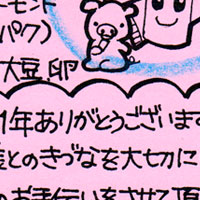 ーモンド
パク)
大豆 卵
1年ありがとうございます
とのきづなを大切に
のお手伝いをさせて頂